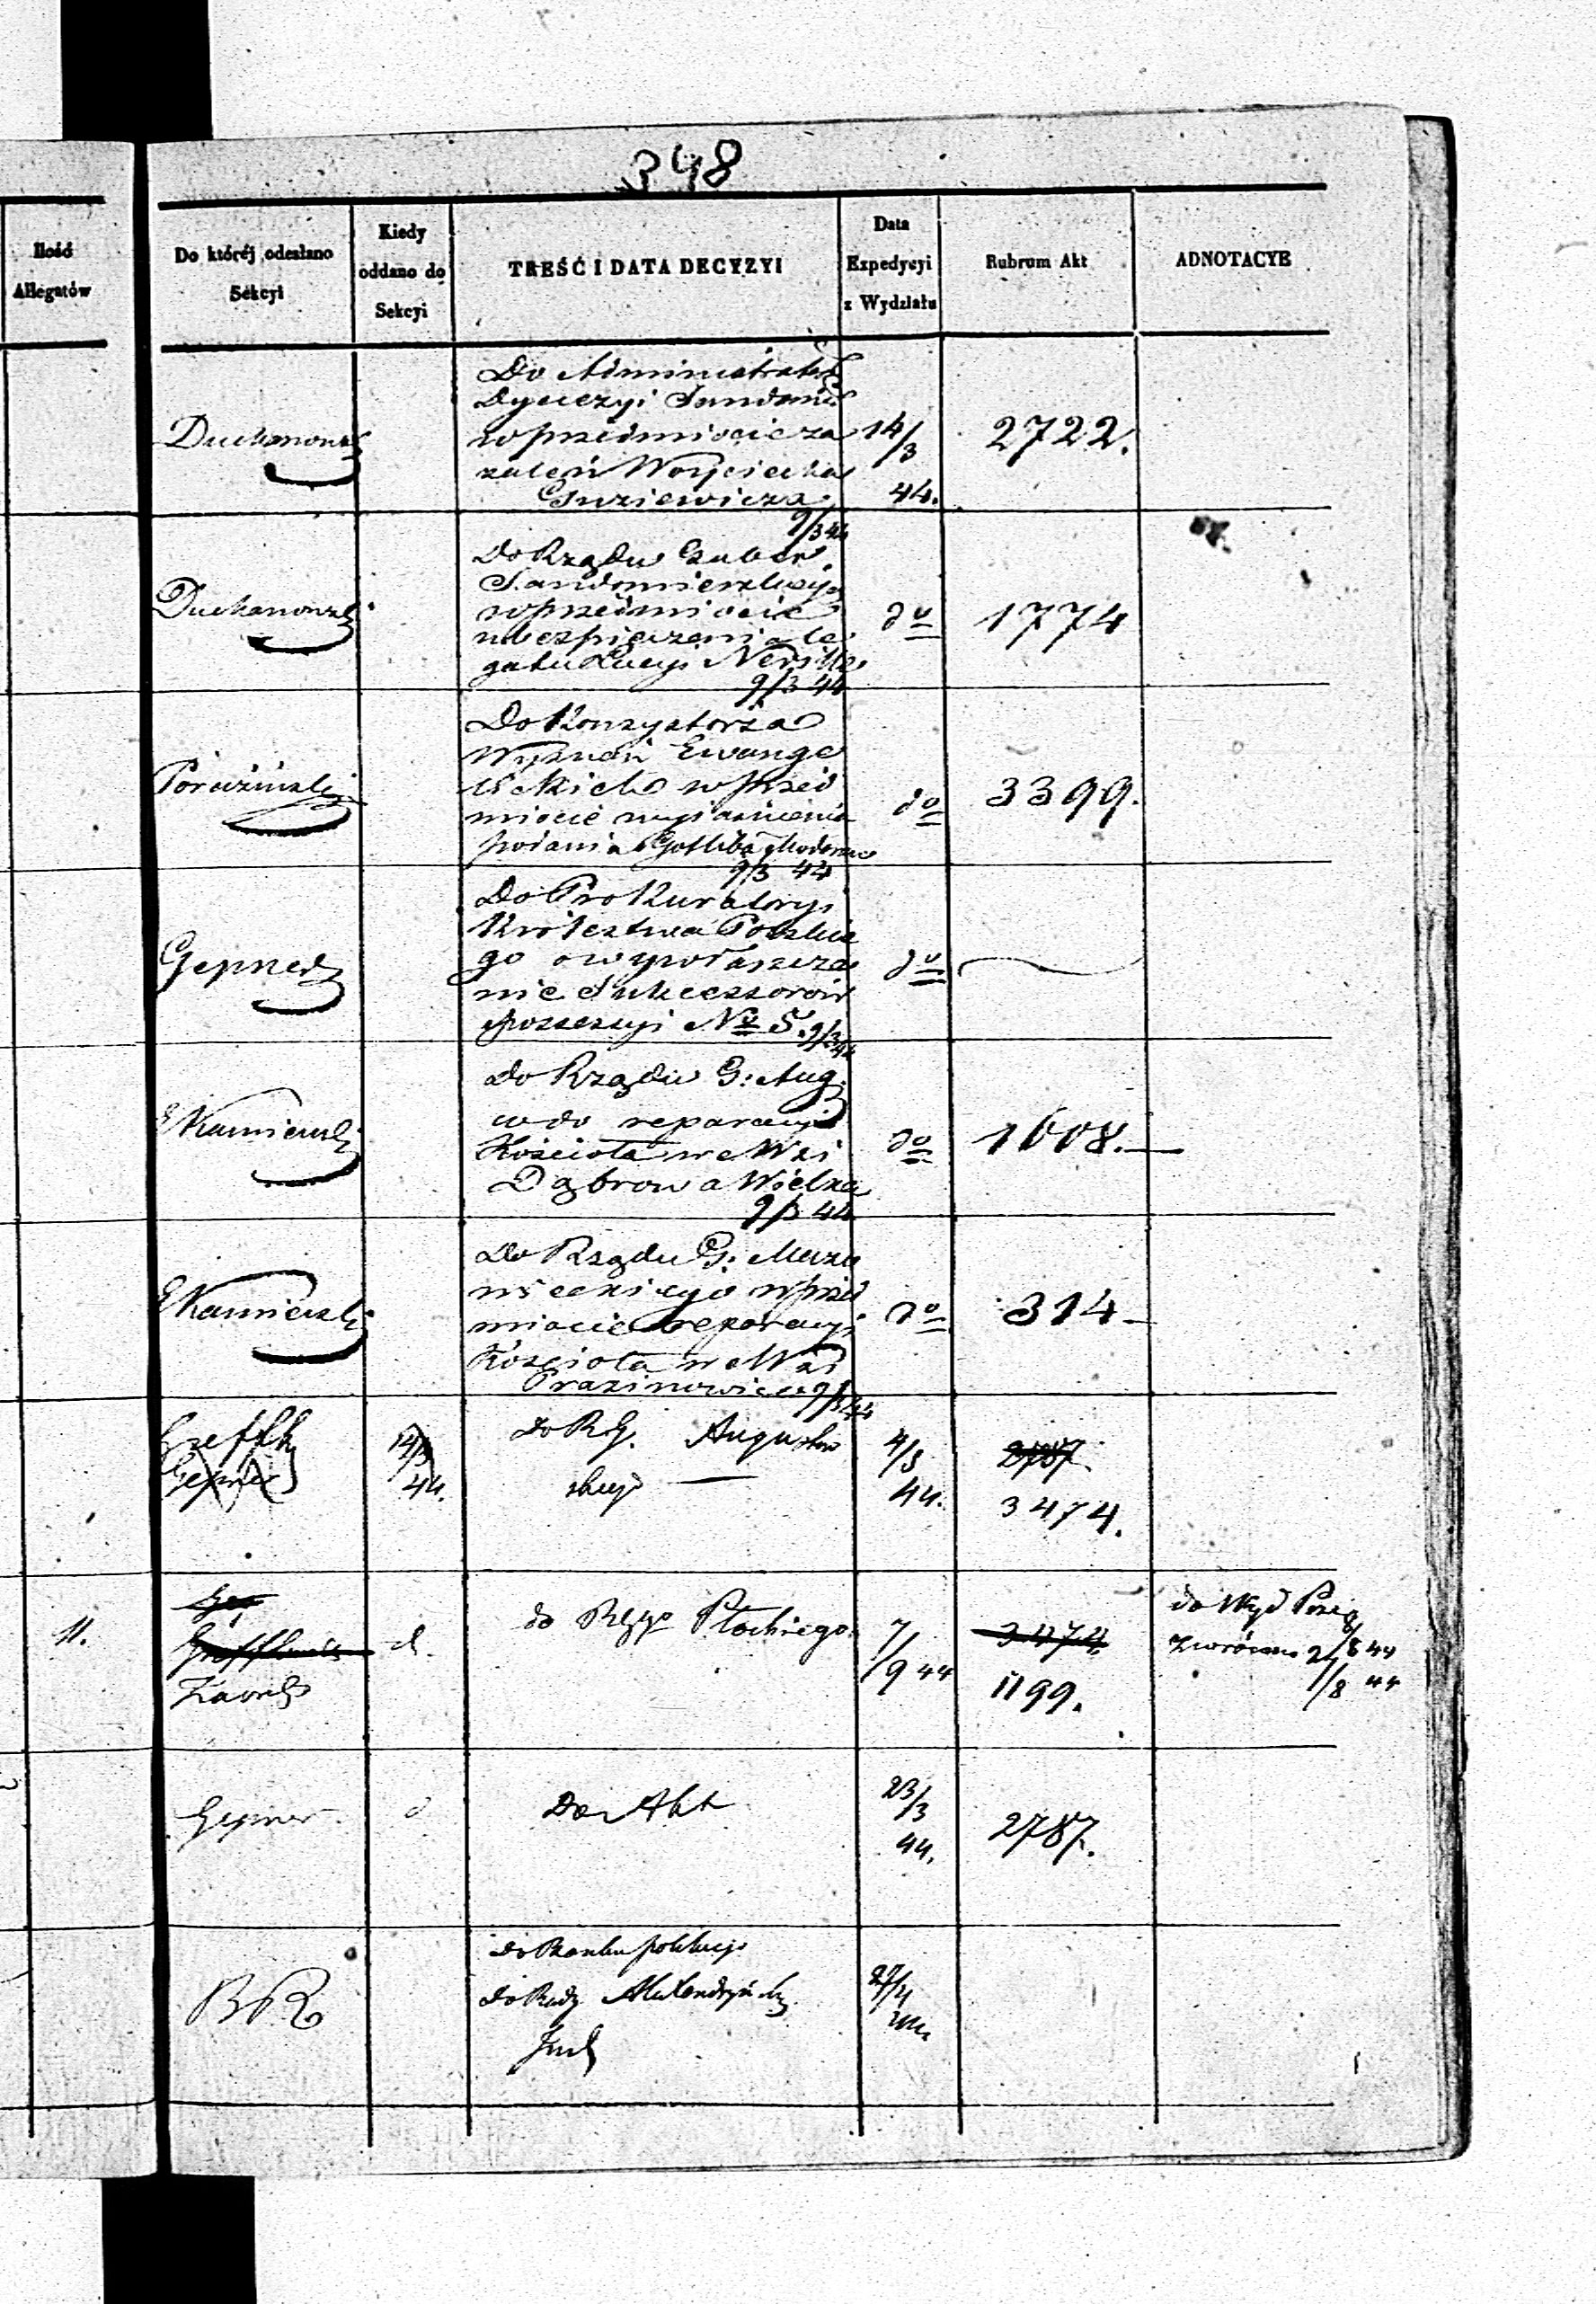 348
Ilość
Allegatów
Do któréj odesłano
Sekcyi
Kiedy
oddano do
Sekcyi
TREŚĆ I DATA DECYZYI
Data
Expedycyi
z Wydziału
Rubrum Akt
ADNOTACYE
Duchanowski
Do Administrators
Dyecezyi Sandomi
w przedmiocie za
żaleń Wojciecha
Guziewicza
9/3 44
14/3
44.
2722.
Duchanowski
Do Rządu Guber.
Sandomierskiego
w przedmiocie
ubezpieczenia le
gatu Łucyi
9/3 44
do
1774
Poruziński
Do Konsystorza
Wyznań Ewange
lickich w przed
miocie wyjaśnienia
podania Gotliba
9/3 44
do
3399.
Gepner
Do Prokuratoryi
Królestwa Polskie
go o wywłaszcze
nie Sukcessorów
possessyi No 5. 9/3 44
do
E Kamieński
Do Rządu G: Aug.
wdo reparacyi
Kościoła we Wsi
Dąbrowa Wielka
9/3 44
do
1608.
E Kamieński
Do Rządu G: Mazo
wieckiego w przed
miocie reparacyi
Kościoła we Wsi
9/3 44
do
314
Gepner
12/3
44.
Do R.G. Augustow
skiego
4/3
44.
2787.
3474.
11.
Gep
d.
do RGgo Płockiego
7/9 44
3474.
1199.
do Wyd
zwrócono 2/8 44
1/8 44
Gepner
d
Do Akt
23/3
44.
2787.
BR
do Banku polskiego
do Rady Alexandryńsk
27/4
44.